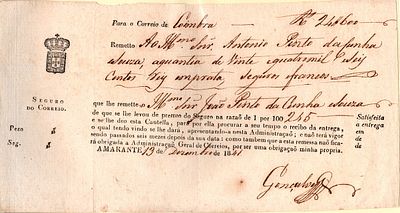 Para o Correio de Coimbra Rs 24$600
Remetto Ao Illmo Snr. Antonio Pinto da Cunha
Souza, aquantia de Vinte iquatromil e Seis
Centos Reis emprata, Seguros
que lhe remette o Illmo Snr João Pinto da Cunha Souza
de que se lhe levou de premio do Seguro na razaõ de 1 por 100 245
e se lhe deo esta Cautella, para por ella procurar a seu tempo o recibo da entrega,
o qual tendo vindo se lhe dara, apresentando-a nesta Administraçaõ; e naõ terá vigor
sendo passados seis mezes depois da sua data: como tambem que a esta remessa naõ fica-
rá obrigada a Administraçaõ Geral de Correios, por ser uma obrigaçaõ minha propria.
AMARANTE 13 de Dezembro de 1841
SEGURO
DO CORREIO.
Pezo $
Seg. $
Satisfeita
a entrega
em
de
de
Gonçalves